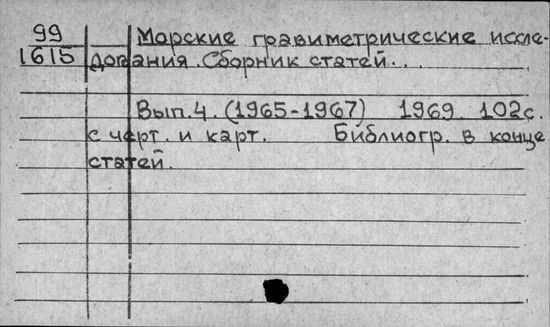 99
1615
Морские гравиметрические иссле-
дования. Сборник статей...
Вып.4. (1965-1967) 1969. 102с.
с черт. и карт. Библиогр. в конце
статей.